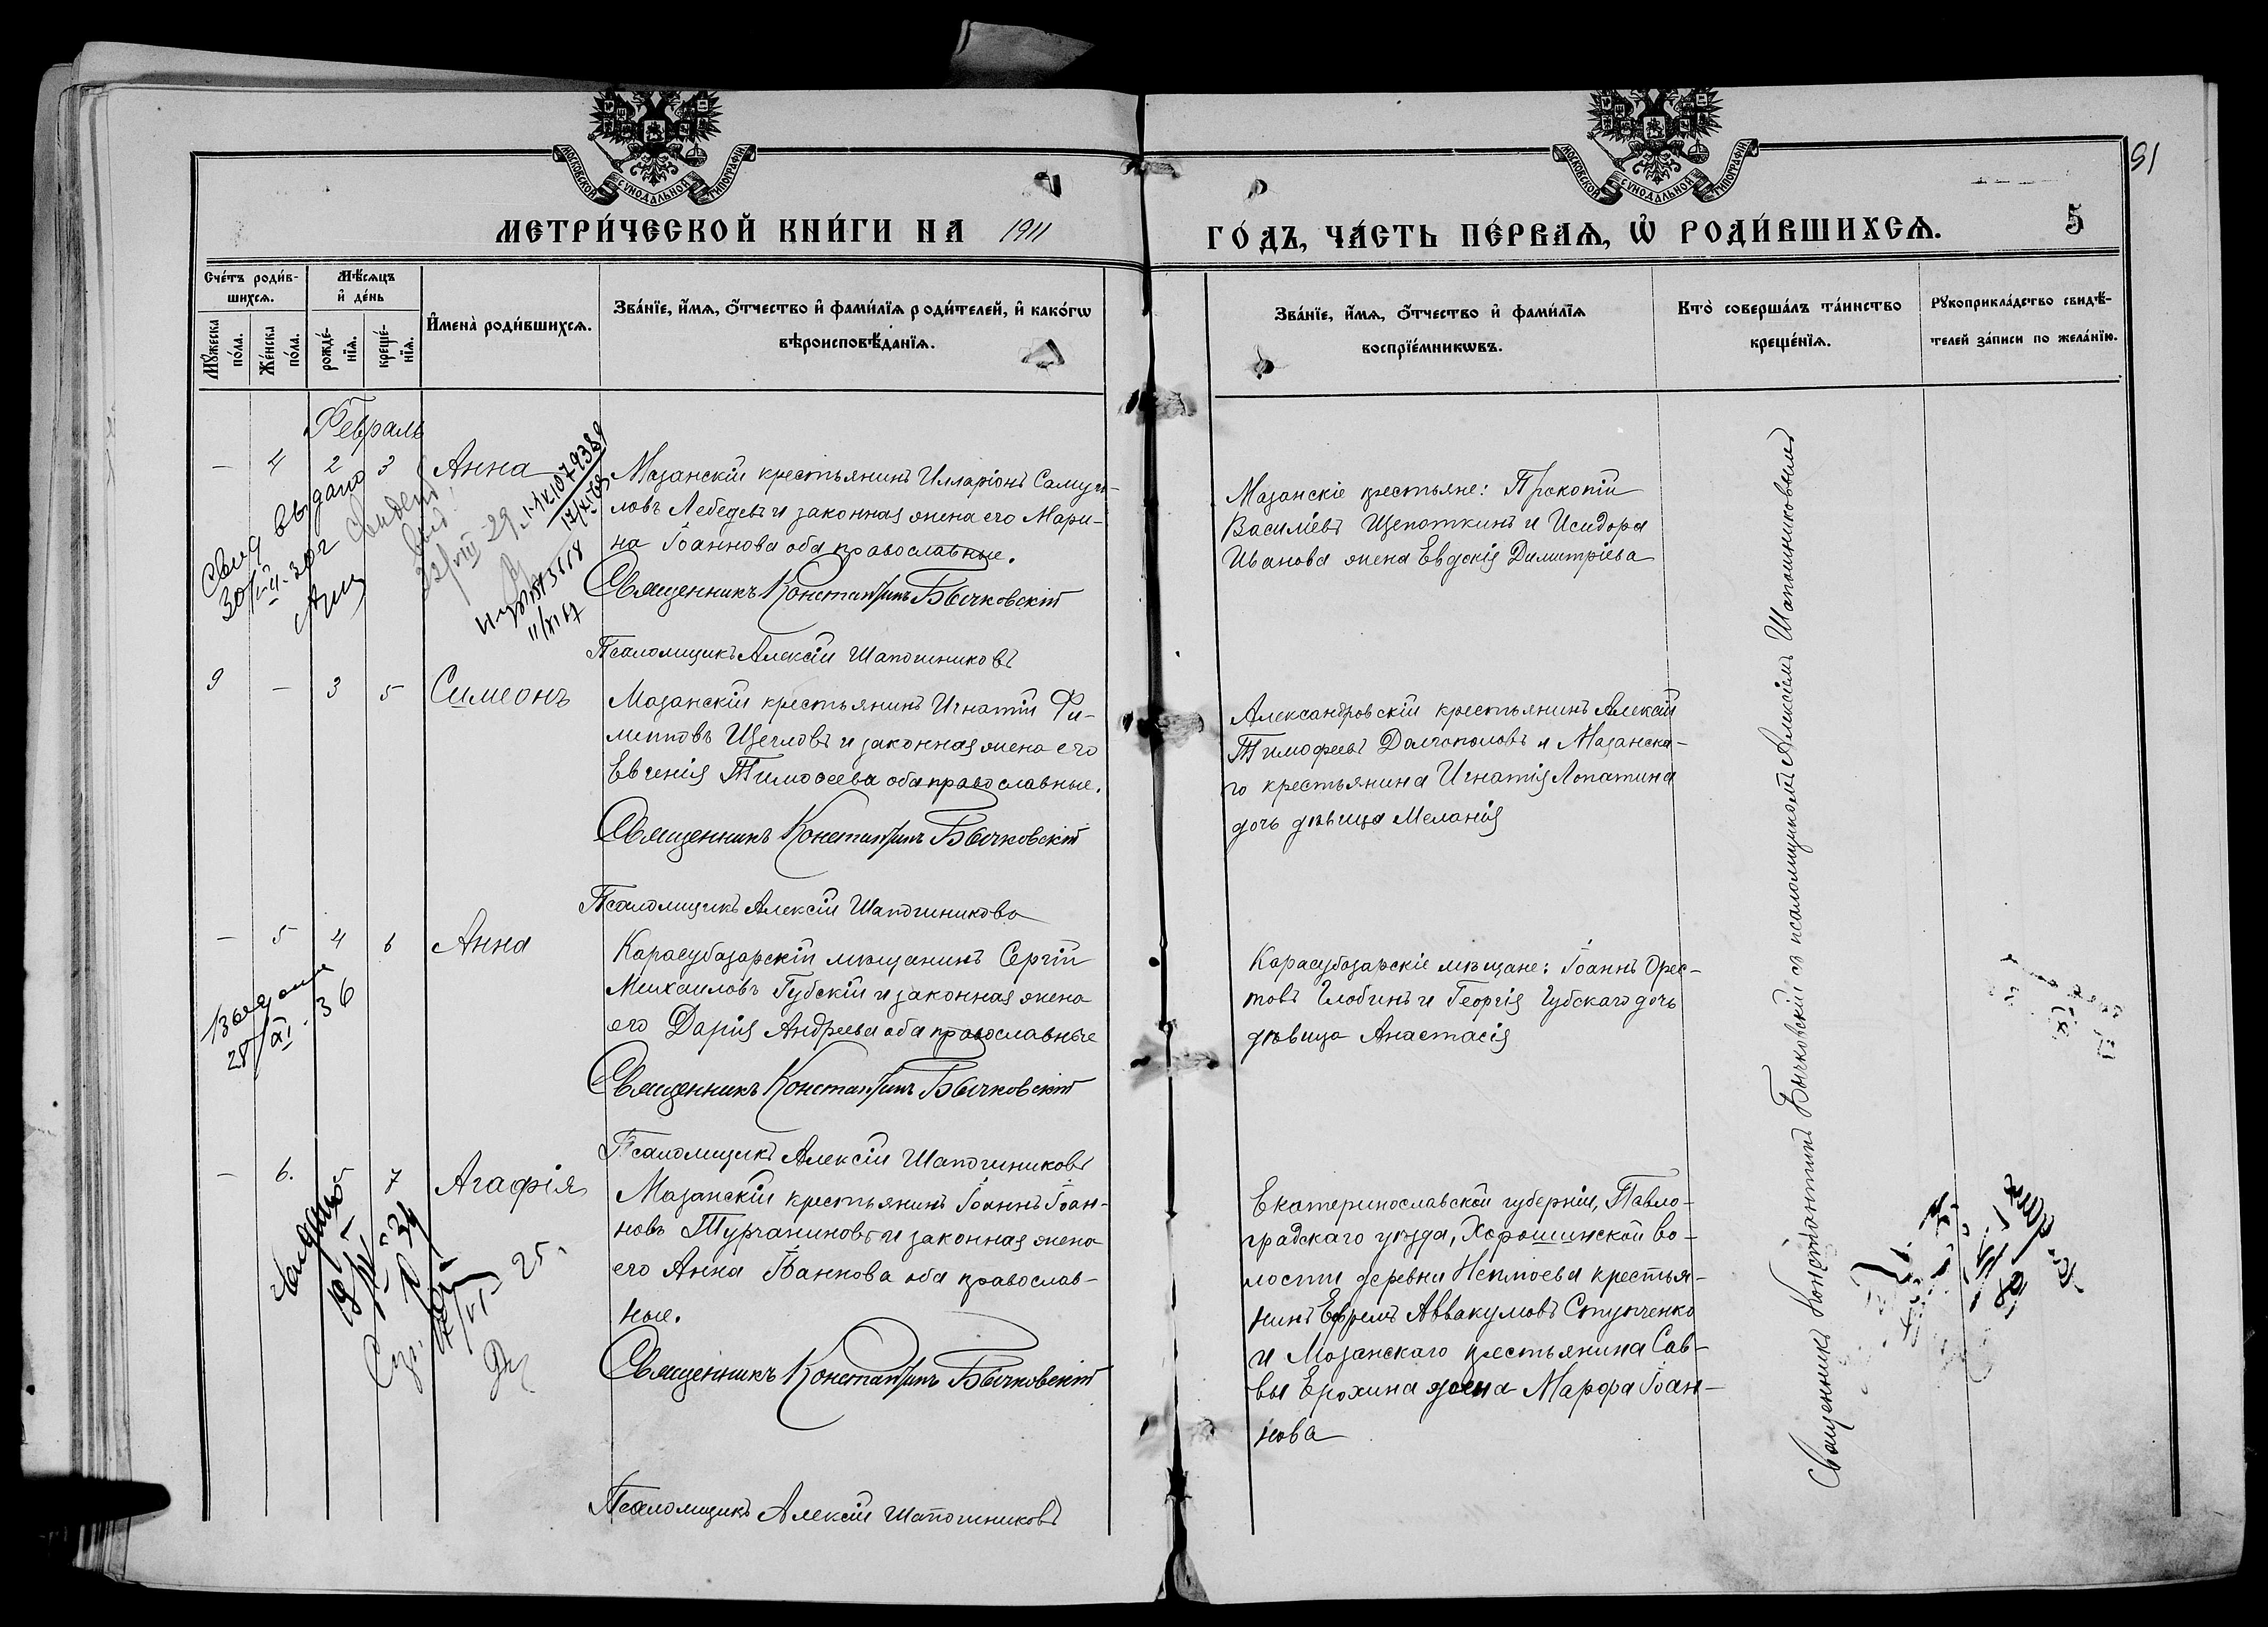 МОСКОВСКОЙ СѴНОДАЛЬНОЙ ТИПОГРАФІИ
МЕТРИ́ЧЕСКОЙ КНИ́ГИ НА 1911
Сче́тъ роди́в-
шихсѧ.
Мꙋ́жеска
по́ла.
Же́нска
по́ла.
Мѣ́сѧцъ
и҆ де́нь
рожде́-
нїѧ.
креще́-
нїѧ.
И҆мена̀ роди́вшихсѧ.
Зва́нїе, и҆́мѧ, ѻ҆́тчество и҆ фами́лїѧ роди́телей, и҆ како́гѡ
вѣроисповѣ́данїѧ.
Февраль
— 4 2 3 Анна
Мазанскій крестьянинъ Илларіонъ Самуи-
ловъ Лебедевъ и законная жена его Мари-
на Іоаннова оба православные.
Священникъ Константинъ Бычковскій
Псаломщикъ Алексій Шапошниковъ
Свид выдано
22/VIII-29
11/XI 67
9 — 3 5 Симеонъ
Мазанскій крестьянинъ Игнатій Фи-
липповъ Щегловъ и законная жена его
Евгенія Тимоѳеева оба православные.
Священникъ Константинъ Бычковскій
Псаломщикъ Алексій Шапошниковъ
— 5 4 6 Анна
Карасубазарскій мѣщанинъ Сергій
Михаиловъ Губскій и законная жена
его Дарія Андреева оба православные
Священникъ Константинъ Бычковскій
Псаломщикъ Алексій Шапошниковъ
28/XI-36
— 6. 5 7 Агафія
Мазанскій крестьянинъ Іоаннъ Іоан-
новъ Турчаниновъ и законная жена
его Анна Іоаннова оба православ-
ные.
Священникъ Константинъ Бычковскій
Псаломщикъ Алексій Шапошниковъ
25.
МОСКОВСКОЙ СѴНОДАЛЬНОЙ ТИПОГРАФІИ
ГО́ДЪ, ЧА́СТЬ ПЕ́РВАѦ, Ѡ҆ РОДИ́ВШИХСѦ.
5
91
Зва́нїе, и҆́мѧ, ѻ҆́тчество и҆ фами́лїѧ
воспрїе́мникѡвъ.
Кто̀ соверша́лъ та́инство
креще́нїѧ.
Рꙋкоприкла́дство свидѣ́-
телей за́писи по жела́нїю.
Мазанскіе крестьяне: Прокопій
Василіевъ Щепоткинъ и Исидора
Иванова жена Евдокія Димитріева
Александровскій крестьянинъ Алексій
Тимофеевъ Долгополовъ и Мазанска-
го крестьянина Игнатія Лопатина
дочь дѣвица Меланія
Карасубазарскіе мѣщане: Іоаннъ Орес-
товъ Глобинъ и Георгія Губскаго дочь
дѣвица Анастасія
Екатеринославской губерніи, Павло-
градскаго уѣзда, Хорошинской во-
лости деревни крестья-
нинъ Ефремъ Аввакумовъ Ступченко
и Мазанскаго крестьянина Сав-
вы Ерохина жена Марфа Іоан-
нова
Священникъ Константинъ Бычковскій съ псаломщикомъ Алексіемъ Шапошниковымъ